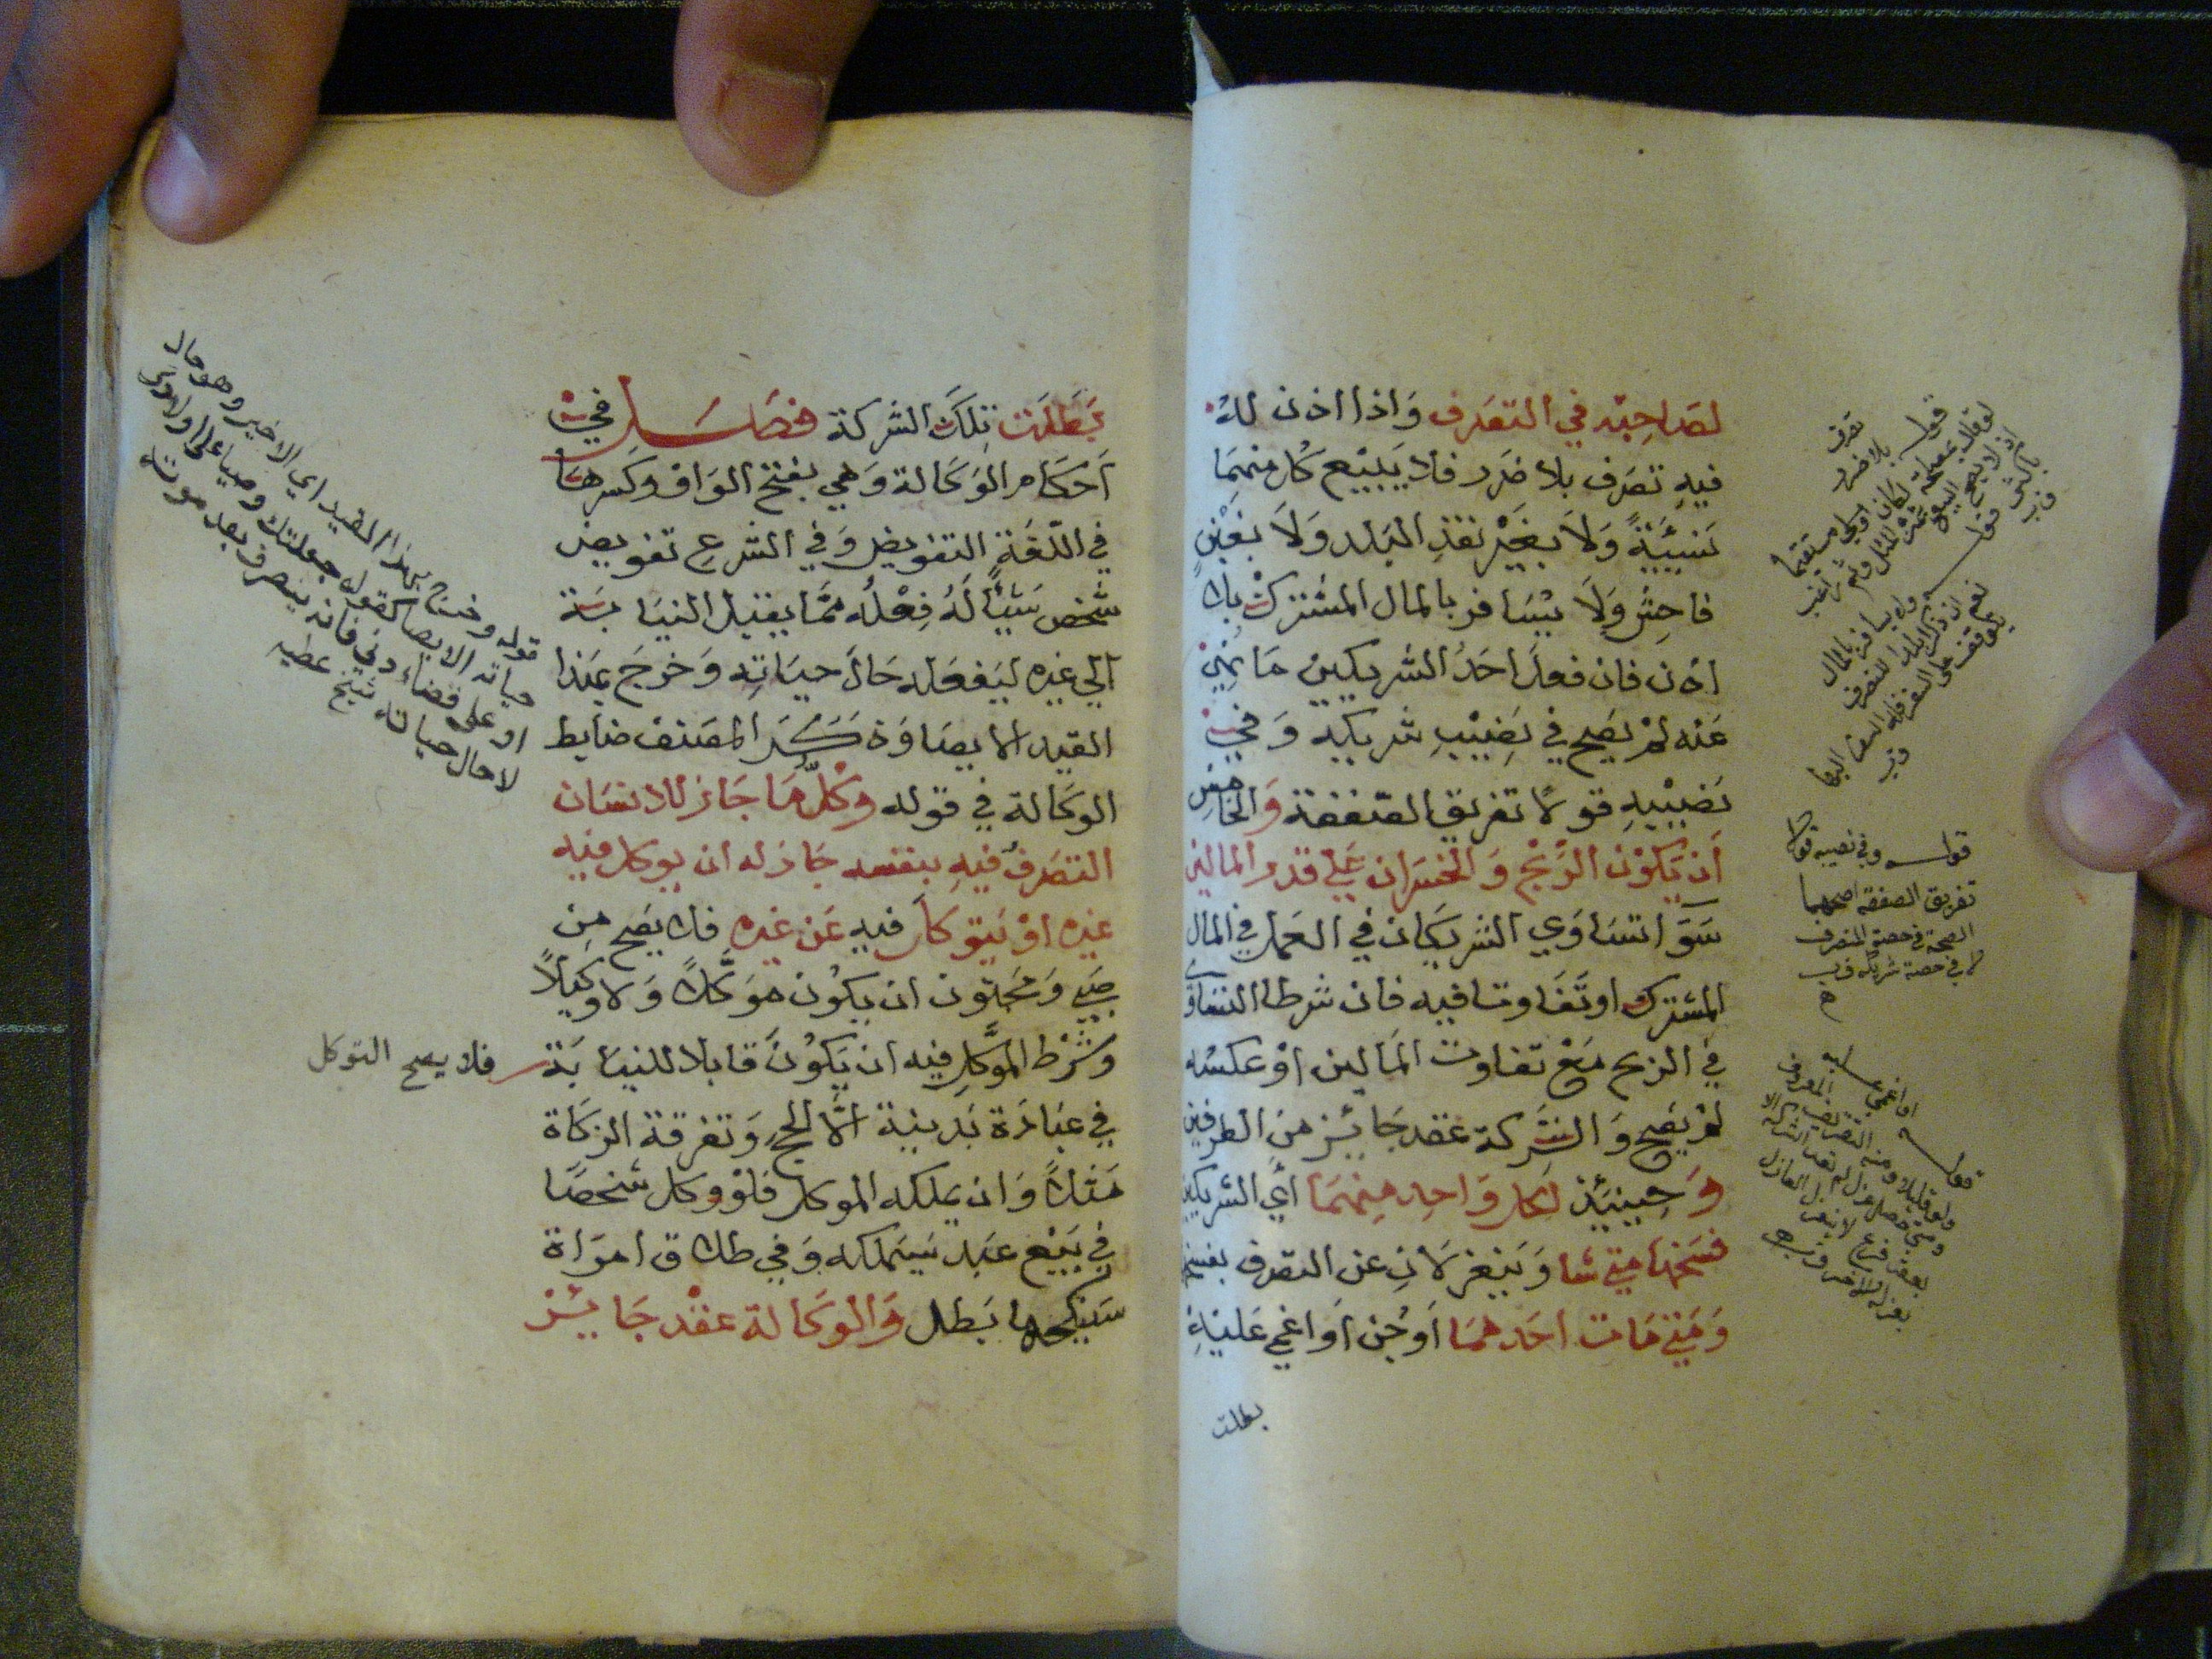 لصَاحِبِه في التصَرف وَاذا اذن لهُ
فيهِ تصَرف بلا ضَرر فلا يَبيْع كل منهمَا
نسِيْئَةً وَلاَ بغَيْر نقدِ البَلد وَلاَ بغبْنٍ
فاحِش وَلاَ يسَافر بالمال المشترك بلا
اذن فان فعل احَدُ الشريكين مَا نهي
عَنه لمْ يصَح في نصِيْبِ شريكه وَفي
نصيْبهِ قولا تفريق الصّفقة وَالخامس
أن يَكوْن الرّبْح وَالخسْران عَلي قدر المالين
سَوَّا تسَاوَي الشريكان في العَمل في المال
المشترك او تَفَاوتا فيه فان شرطا التساوي
في الربح مَعْ تفاوت المَالين اوْ عكسُه
لمْ يَصح وَالشركة عقد جَايز من الطرفين
وَحِينئذ لكل وَاحِد مِنهمَا اي الشريكين
فسْخها متي شا وَيَنْعَزلاَنِ عن التصرف بفسخها
وَمَتي مَات احَدهمَا اَو جُن اَو اغمي عَليْهِ
بطلت
تصرف
قوله بلا ضرر
لو قال بمصلحة لكان اولي مستقيما
قوله ولا يسافر بالمال
نعم ان ذكر ابلدا للتصرف
قوله وفي نصيبه قولا
تفريق الصفقه اصحهما
الصحة في حصة المتصرف
لا في حصة شريكه
قوله او اغمي عليه
بَطلَت تِلكَ الشركة فصْل في
اَحكام الوَكالة وَهي بفتح الوَاو وَكسرهَا
في اللّغَة التفويض وَفي الشرع تفويض
شخص شيْئًا لَهُ فِعْلُه ممَّا يقبل النيَابَة
الي غيره ليَفعَله حَالَ حيَاتِه وَخرجَ بهَذا
القيد الايصَا وَذكَرَ المصَنف ضابط
الوَكالة في قوله وَكلّ مَا جَاز للانسَان
التصَرف فيهِ بنفسه جَاز له ان يوكل فيه
غيره اوْ يتوكل فيهِ عَن غيره فلا يصَح مِن
صَبي وَمَجنون ان يكوُن موَكّلاً وَلا وَكيْلاً
وشَرْط الموَكَّل فيه ان يَكوُنَ قابلا للنيابَة
فلا يصح التوكل
في عبَادَة بَدنيَة الاّ الحج وَتفرقة الزكاة
مَثلاً وَان يملكه الموكل فلوْ وكل شخصًا
في بَيْع عَبْد سَيَملكه وَفي طلاق امرَاة
سَينكِحُها بَطل وَالوَكالة عقْد جَايز
قوله وخرج بهذا القيد اي الاخير وهو حال
حياته الايصا كقوله جعلتك وصيا علي اولادي
او علي قضاء ديني فانه يتصرف بعد موته
لا حال حياته شيخ عطيه